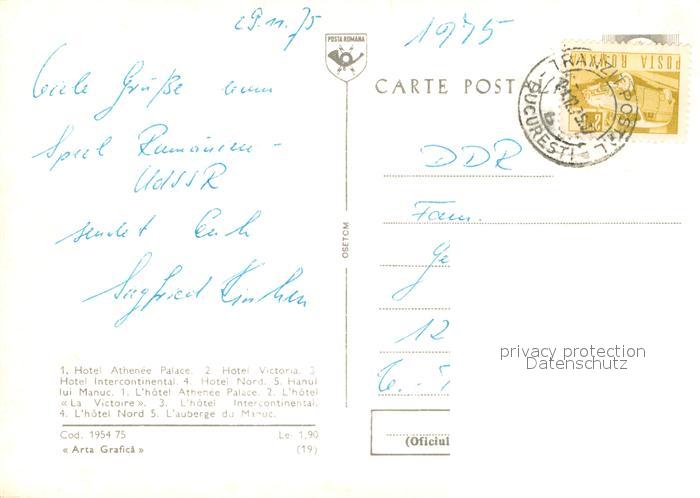 29.11.75
Viele Grüße vom
Spiel Rumänien -
UdSSR
sendet Euch
Siegfried
1. Hotel Athenée Palace. 2 Hotel Victoria. 3
Hotel Intercontinental. 4. Hotel Nord. 5. Hanul
lui Manuc. 1. L'hôtel Athenée Palace. 2. L'hôtel
«La Victoire». 3. L'hôtel Intercontinental.
4. L'hôtel Nord 5. L'auberge du Manuc.
Cod. 1954 75 Lei 1,90
« Arta Grafică » (19)
POSTA ROMANA
OSETCM
1975
CARTE POSTAL
POSTA ROMANA
BUCUREȘTI
DDR
Fam.
Ge
12
(Oficiul
privacy protection
Datenschutz